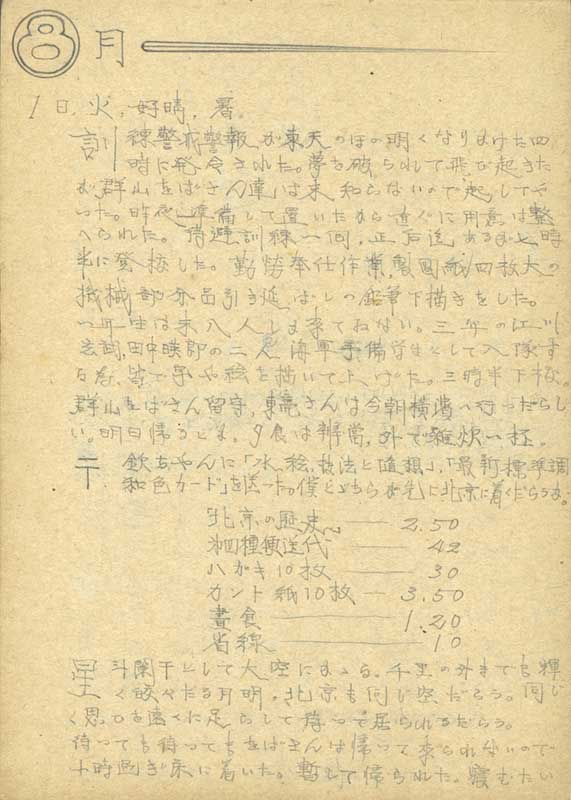 8月
1日, 火, 好晴, 暑,
訓練警戒警報が東天のほの明くなりかけた四
時に発令された。夢を破られて飛び起きた
が群山をばさん達は未知らないので起してや
った。昨夜準備して置いたから直ぐに用意は整
へられた。待避訓練一回, 正午迄あるも七時
半に登校した。勤労奉仕作業, 製図紙四枚大の
機械部分品引き延ばしの鉛筆下描きをした。
一年生は未八人しか来てゐない。三年の江川
田中暎郎の二人海軍予備学生として入隊す
る為, 皆で字や絵を描いて上げた。三時半下校。
群山をばさん留守, 東亮さんは今朝横濱へ行ったらし
い。明日帰るとも。夕食は辨當, 外で雑炊一杯。
〒 欽ちゃんに「水絵, 技法と随想」,「最新標準調
和色カード」を送った。僕とどちらが先に北京に着くだらうか。
北京の歴史 — 2.50
第四種便送代 — 42
ハガキ10枚 — 30
カント紙10枚 — 3.50
晝食 — 1.20
省線 — 10
星斗闌干として大空にかゝる。千里の外までも輝
く皎々たる月明, 北京も同じ空だらう。同じ
く思ひを遠くに足らして待って居られるだらう。
待っても待ってもをばさんは帰って来られないので
十時過ぎ床に着いた。暫して帰られた。寝むたい